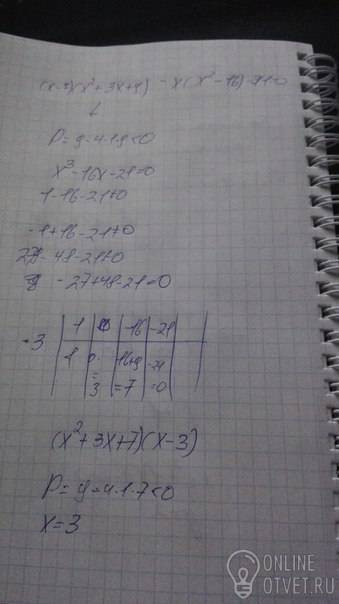 x(x²-16)-21=0
D=9-4·1·9<0
x³-16x-21=0
1-16-21≠0
-1+16-21≠0
27-48-21≠0
-27+48-21=0
-3 1 0 -16 -21
1 -16+9 -21
3 =7 =0
(x²+3x+7)(x-3)
D=9-4·1·7<0
x=3
ONLINE
OTVET.RU